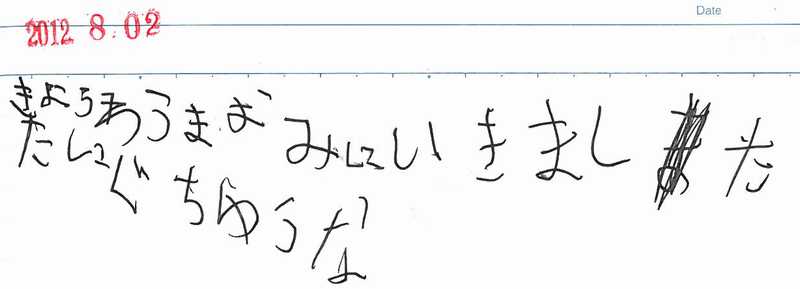 Date
2012 8.02
きようわうまおみにいきました
たにぐちゆうな